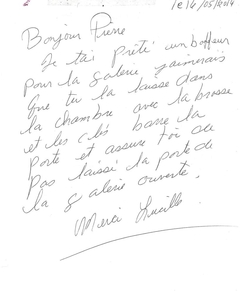 le 16/05/2014
Bonjour Pierre
Je t'ai prêté un
pour la galerie j'aimerais
que tu la laisse dans
la chambre avec la brosse
et les clés barre la
porte et assure toi de
pas laissé la porte de
la galerie ouverte.
Merci Lucille